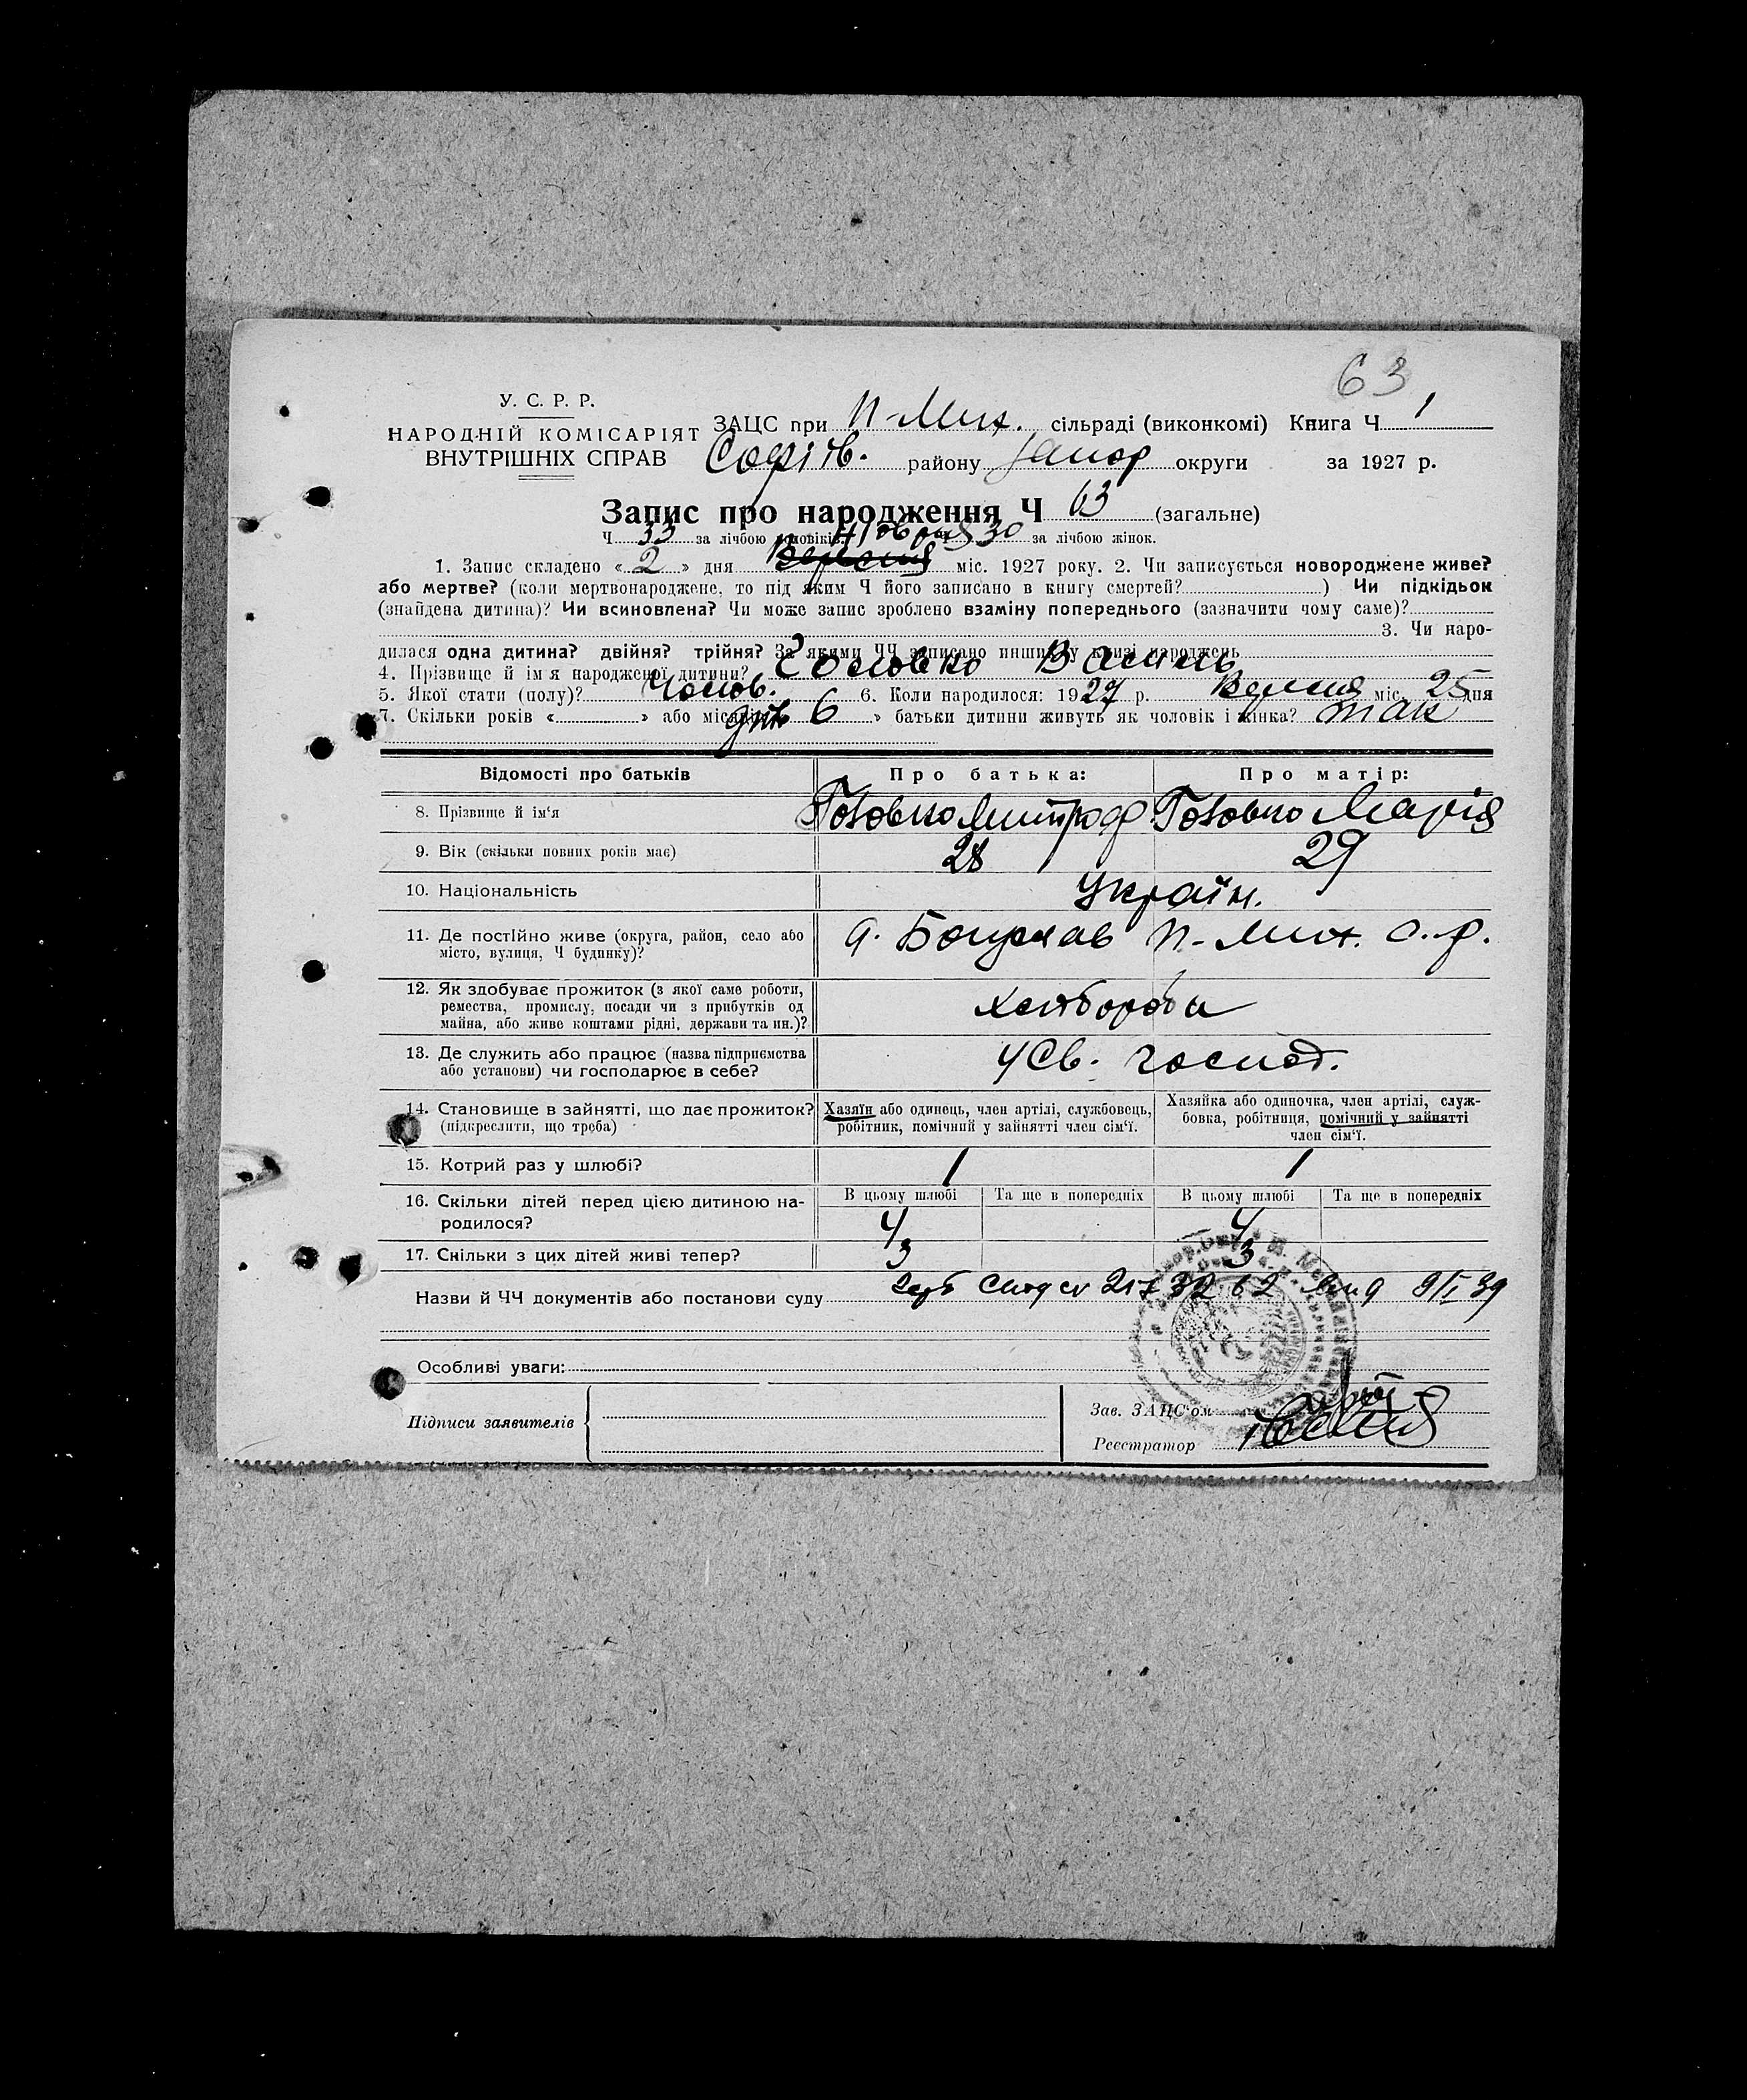 63
У. С. Р. Р.
НАРОДНІЙ КОМІСАРІЯТ
ВНУТРІШНІХ СПРАВ
ЗАЦС при П-Мих. сільраді (виконкомі) Книга Ч 1
Софіїв. району Запор округи за 1927 р.
Запис про народження Ч 63 (загальне)
Ч 33 за лічбою чоловіків, Ч 30 за лічбою жінок.
Жовтня
1. Запис складено « 2 » дня Вересня міс. 1927 року. 2. Чи записується новороджене живе?
або мертве? (коли мертвонароджене, то під яким Ч його записано в книгу смертей? ) Чи підкідьок
(знайдена дитина)? Чи всиновлена? Чи може запис зроблено взаміну попереднього (зазначити чому саме)?
3. Чи наро-
дилася одна дитина? двійня? трійня? За якими ЧЧ записано инших у книзі народжень
4. Прізвище й ім'я народженої дитини? Головко Василь
5. Якої стати (полу)? Чолов. 6. Коли народилося: 1927 р. Вересня міс. 25 дня
7. Скільки років « » або місяців 6 » батьки дитини живуть як чоловік і жінка? так
Відомості про батьків
Про батька:
Про матір:
8. Прізвище й ім'я
Головко Митроф
Головко Марія
9. Вік (скільки повних років має)
28
29
10. Національність
Україн.
11. Де постійно живе (округа, район, село або
місто, вулиця, Ч будинку)?
Богуслав П-Мих. с.р.
12. Як здобуває прожиток (з якої саме роботи,
ремества, промислу, посади чи з прибутків од
майна, або живе коштами рідні, держави та ин.)?
хлібороби
13. Де служить або працює (назва підприємства
або установи) чи господарює в себе?
у св. господ.
14. Становище в зайнятті, що дає прожиток?
(підкреслити, що треба)
Хазяїн або одинець, член артілі, службовець,
робітник, помічний у зайнятті член сім'ї.
Хазяйка або одиночка, член артілі, служ-
бовка, робітниця, помічний у зайнятті
член сім'ї.
15. Котрий раз у шлюбі?
1
1
16. Скільки дітей перед цією дитиною на-
родилося?
В цьому шлюбі
Та ще в попередніх
В цьому шлюбі
Та ще в попередніх
4
4
17. Скільки з цих дітей живі тепер?
3
3
Назви й ЧЧ документів або постанови суду
Особливі уваги:
Підписи заявителів
Зав. ЗАЦС'ом
Реєстратор